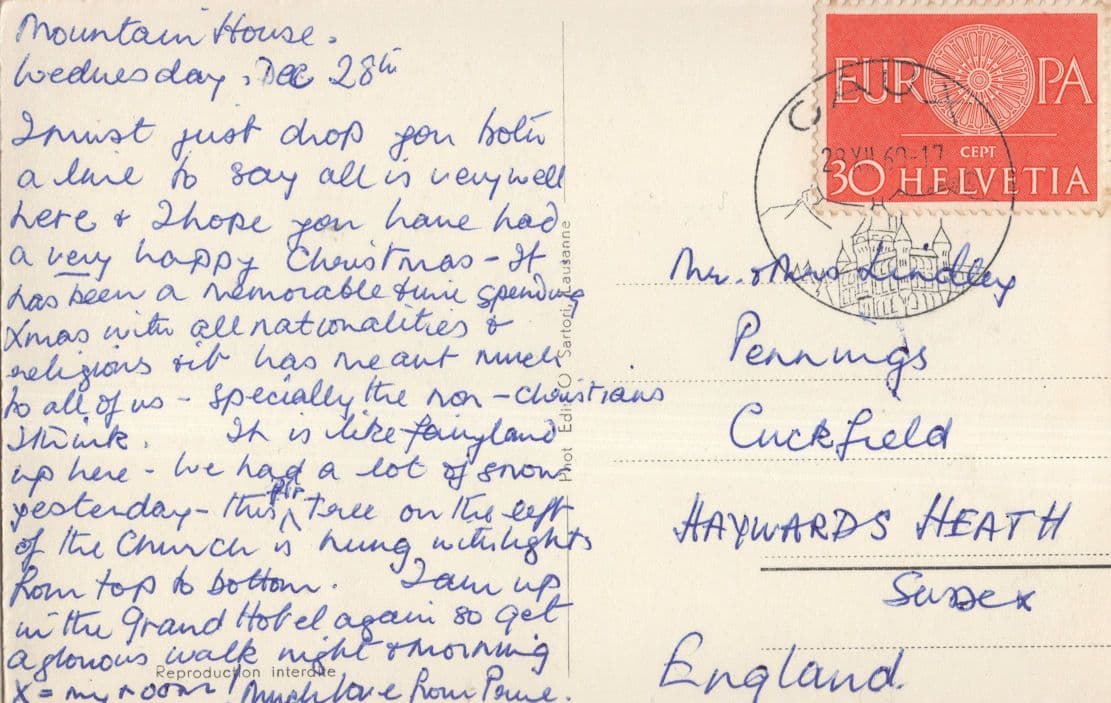 Mountain House.
Wednesday, Dec 28th
I must just drop you both
a line to say all is very well
here & I hope you have had
a very happy Christmas - It
has been a memorable time spending
Xmas with all nationalities &
religions & it has meant much
to all of us - specially the non-christians
I think. It is like fairyland
up here - We had a lot of snow
yesterday - this fir tree on the left
of the Church is hung with lights
from top to bottom. I am up
in the Grand Hotel again so get
a glorious walk night & morning
X = my room! Much love from
Reproduction interdite
Phot Edit O Sartori, Lausanne
EUROPA
CEPT
30 HELVETIA
CAUX
XII 60-17
Mr. & Mrs Lindley
Pennings
Cuckfield
HAYWARDS HEATH
Sussex
England.